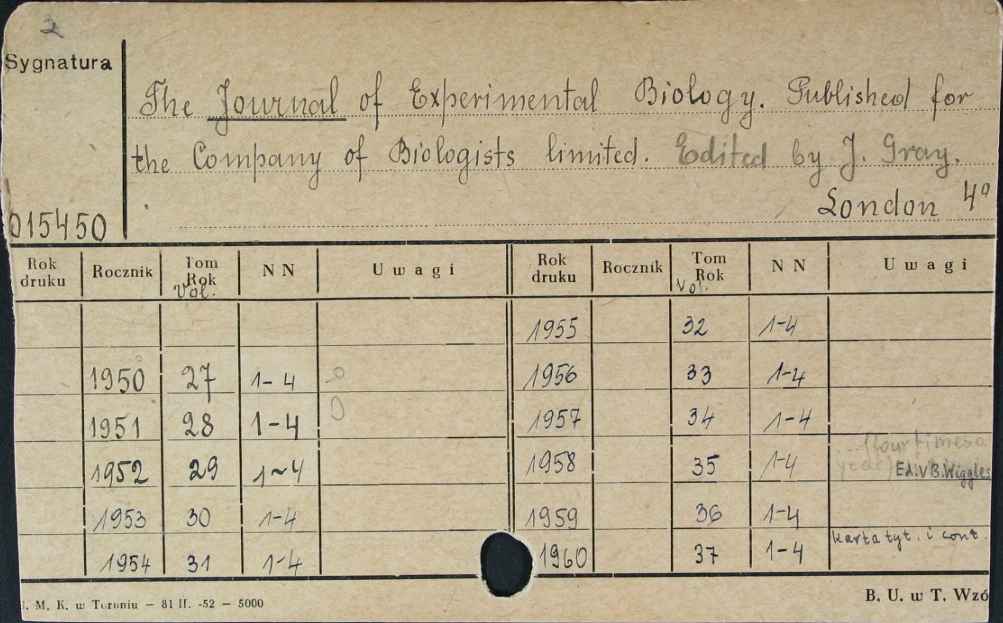 2
Sygnatura
The Journal of Experimental Biology. Published for
the Company of Biologists limited. Edited by J. Gray.
London 4°
015450
Rok druku Rocznik Tom Rok Vol. NN Uwagi Rok druku Rocznik Tom Rok Vol. NN Uwagi
1955 32 1-4
1950 27 1-4 1956 33 1-4
1951 28 1-4 1957 34 1-4
1952 29 1-4 1958 35 1-4 (four times a year) Ed. V.B. Wiggles
1953 30 1-4 1959 36 1-4
1954 31 1-4 1960 37 1-4 karta tyt. i cont.
M. K. w Toruniu — 81 II. -52 — 5000
B. U. w T. Wzó